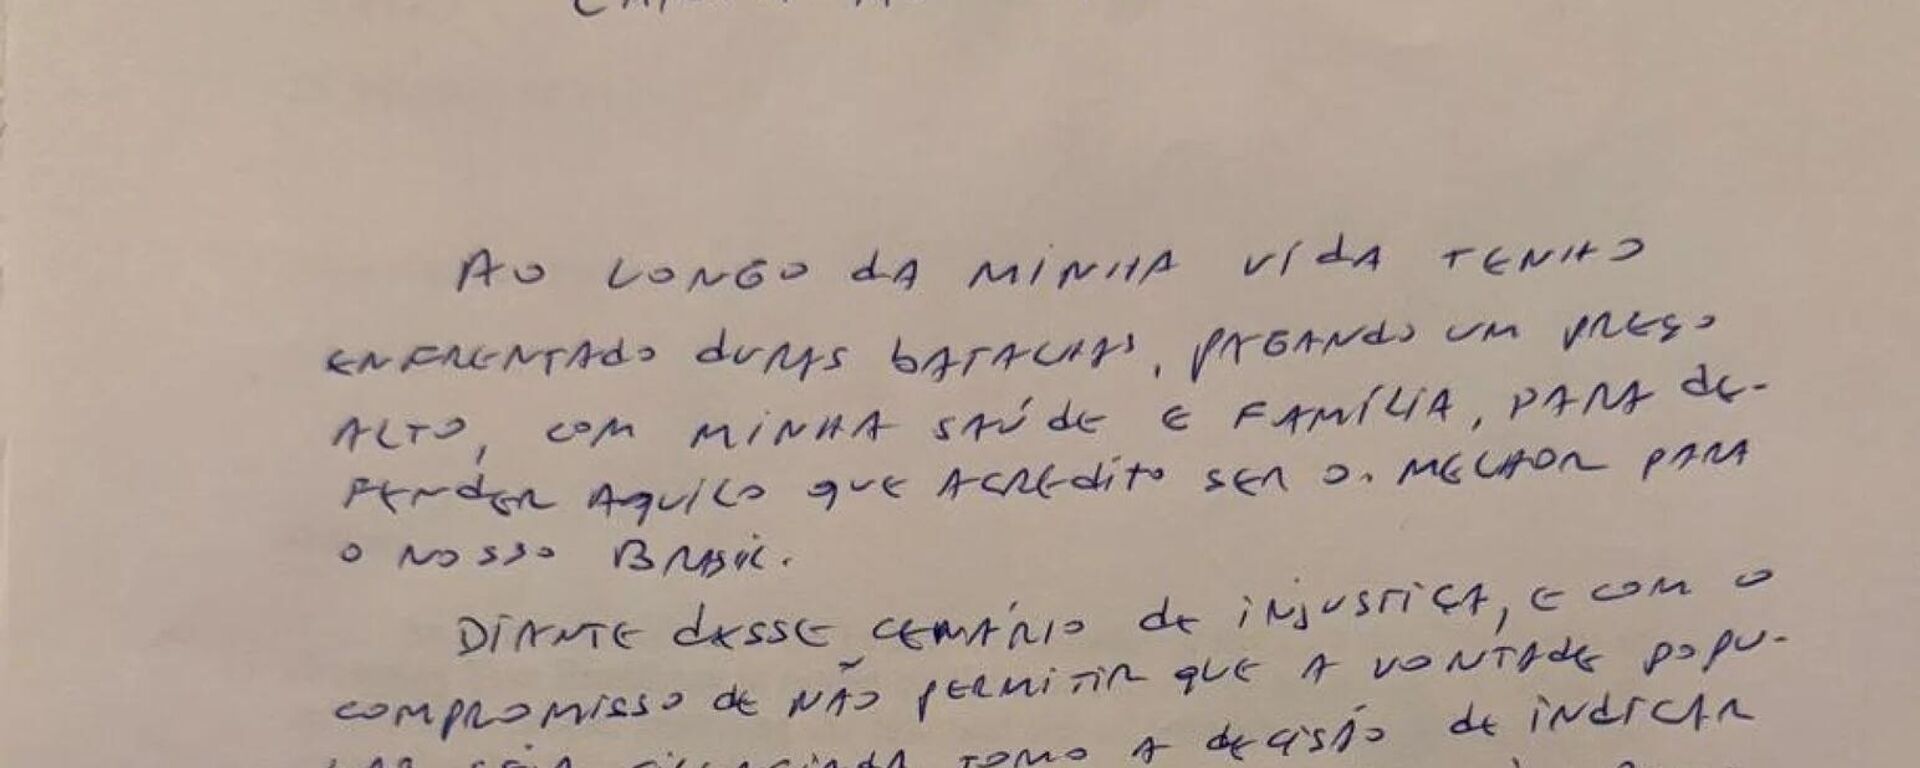 Ao longo da minha vida tenho
enfrentado duras batalhas, pagando um preço
alto, com minha saúde e família, para de-
fender aquilo que acredito ser o melhor para
o nosso Brasil.
Diante desse cenário de injustiça, e com o
compromisso de não permitir que a vontade popu-
lar seja silenciada tomo a decisão de indicar